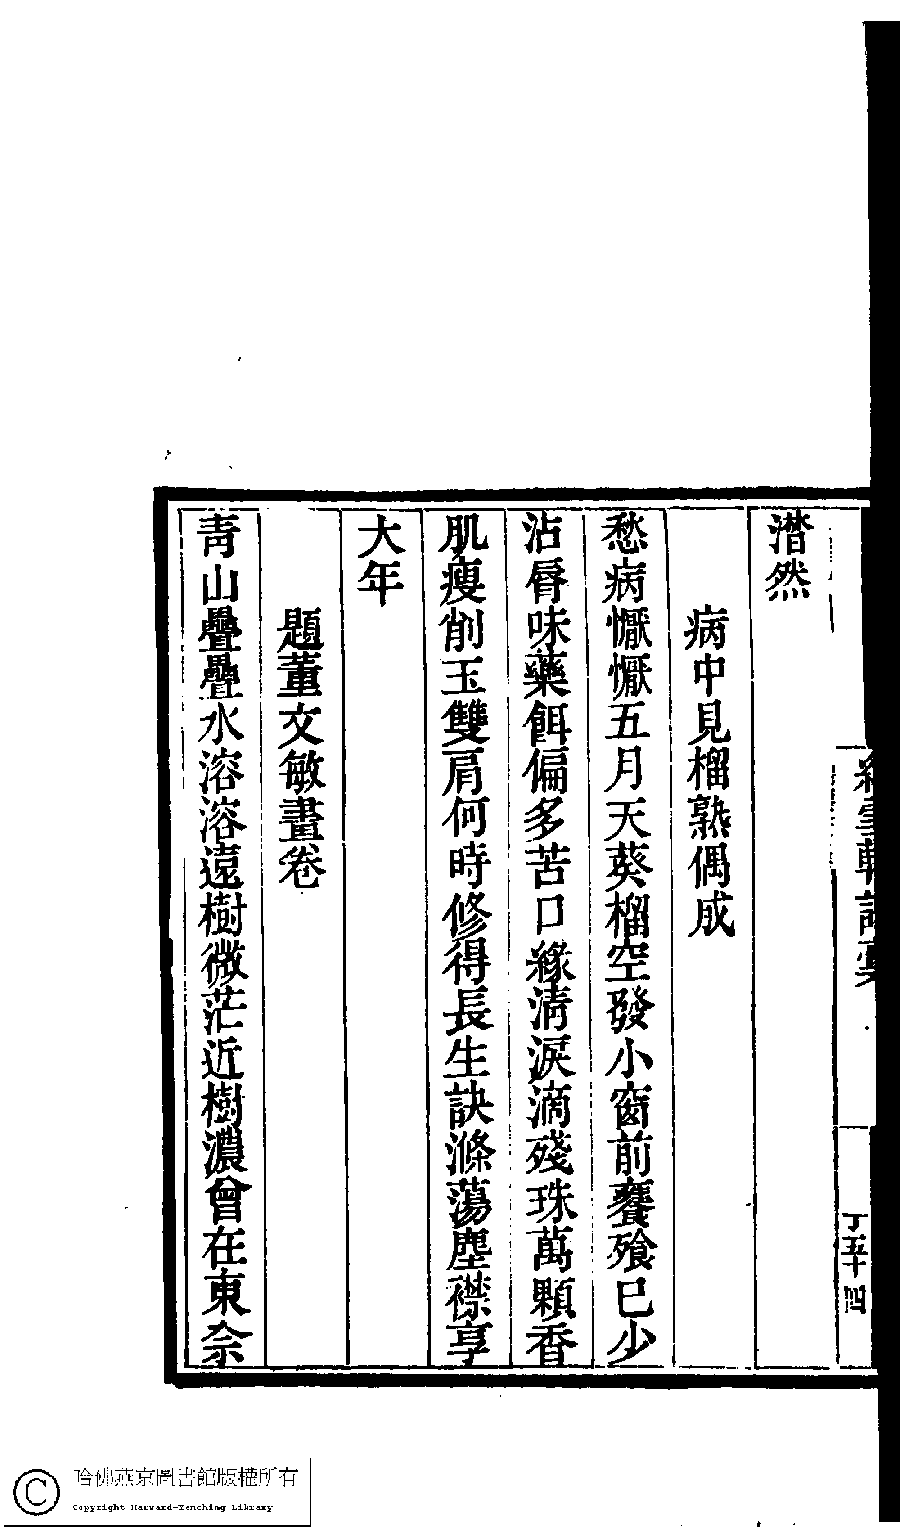 潸然
病中見榴熟偶成
愁病懨懨五月天葵榴空發小窗前饔飱已少
沾脣味藥餌偏多苦口緣淸淚滴殘珠萬顆香
肌瘦削玉雙肩何時修得長生訣滌蕩塵襟享
大年
題董文敏畫卷
靑山疊疊水溶溶遠樹微茫近樹濃曾在東佘
雪軒詩稾
丁五十四
哈佛燕京圖書館版權所有
Copyright Harvard-Yenching Library